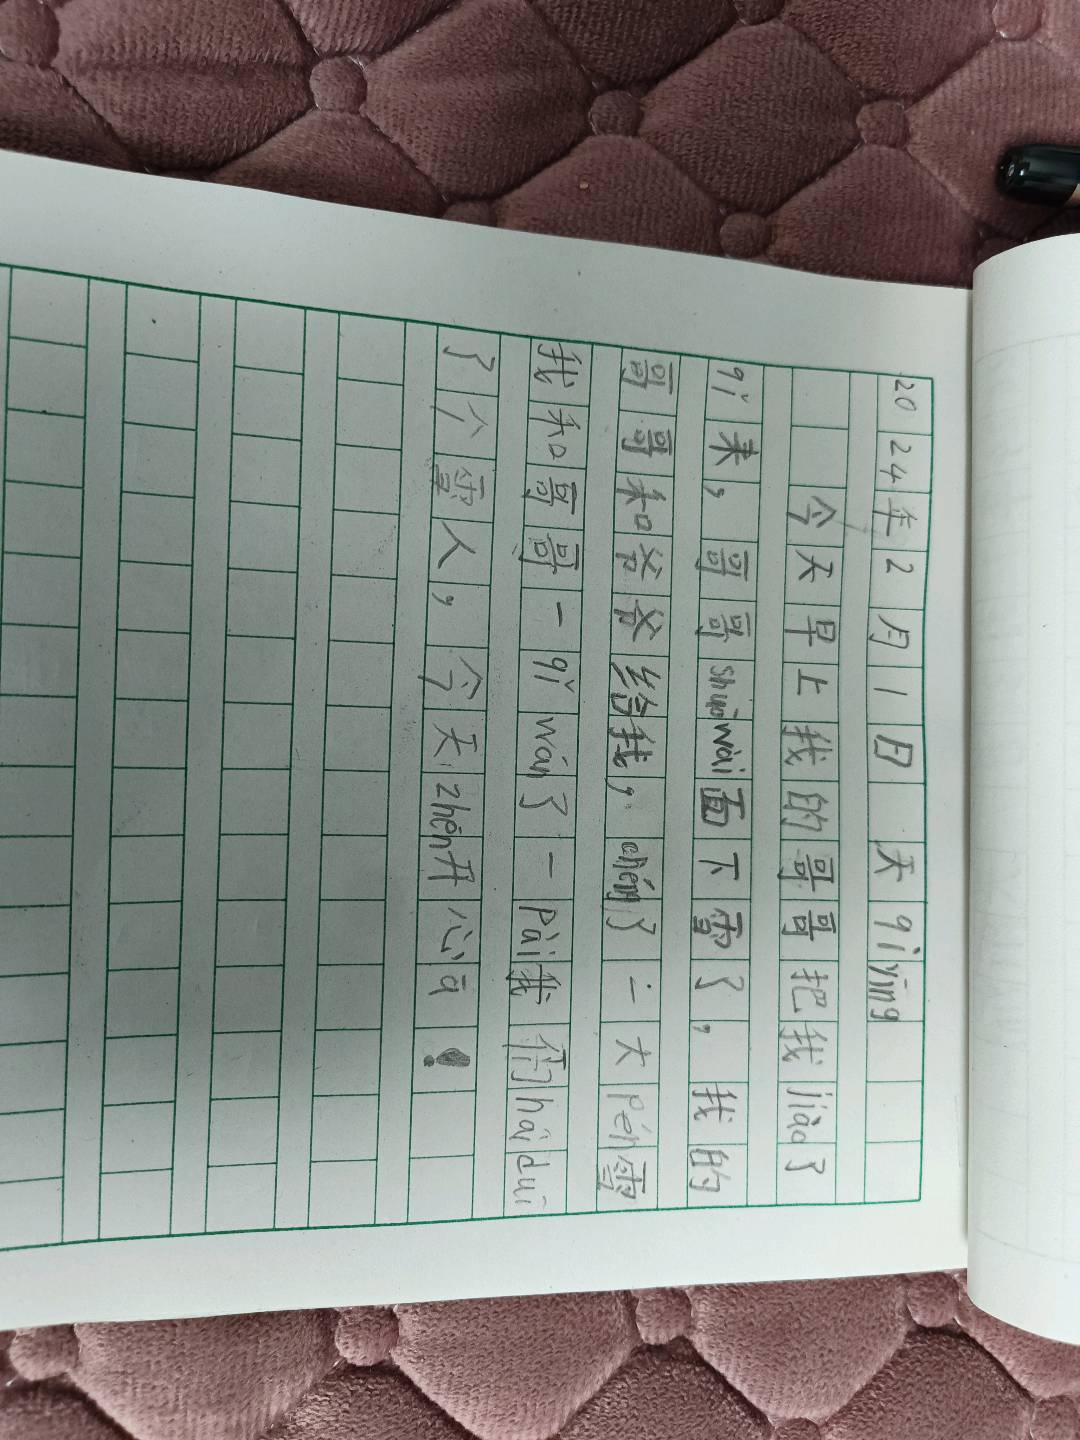 2024年2月1日 天qì yīng
今天早上我的哥哥把我jiào了
qǐ来，哥哥shuō wài面下雪了，我的
哥哥和爷爷给我，chéng了一大pén雪
我和哥哥一qǐ wán了一pài我们hái duī
了个雪人，今天zhēn开心ā！